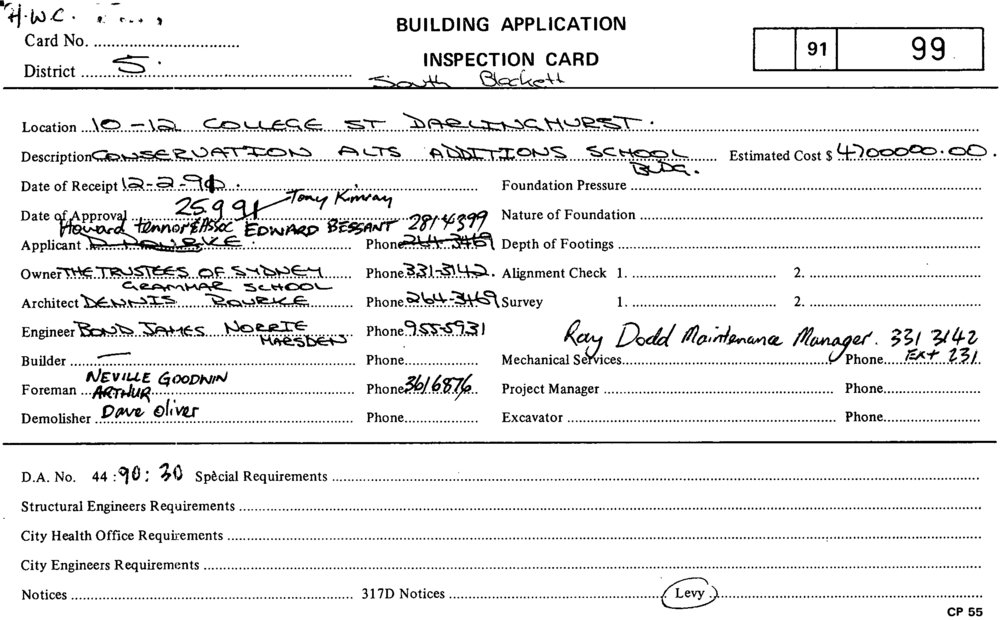 H.W.C.
BUILDING APPLICATION
Card No.
INSPECTION CARD
91 99
District 5.
South Blackett
Location 10-12 COLLEGE ST DARLINGHURST.
Description CONSERVATION ALTS ADDITIONS SCHOOL BLDG. Estimated Cost $ 4700000.00.
Date of Receipt 12-2-91. Foundation Pressure
Tony Kimray
Date of Approval 25 9 91 Nature of Foundation
Howard Tennor & Assoc EDWARD BESSANT 281 4399
Applicant D. ROURKE Phone 264-3469 Depth of Footings
Owner THE TRUSTEES OF SYDNEY GRAMMAR SCHOOL Phone 331-3142. Alignment Check 1. 2.
Architect DENNIS ROURKE Phone 264-3469 Survey 1. 2.
Engineer BOND JAMES NORRIE MARSDEN Phone 955-5931
Ray Dodd Maintenance Manager. 331 3142
Builder — Phone Mechanical Services Phone Ext 231.
Foreman NEVILLE GOODWIN ARTHUR Phone 3616876 Project Manager Phone
Demolisher Dave Oliver Phone Excavator Phone
D.A. No. 44 : 90 : 30 Special Requirements
Structural Engineers Requirements
City Health Office Requirements
City Engineers Requirements
Notices 317D Notices Levy
CP 55